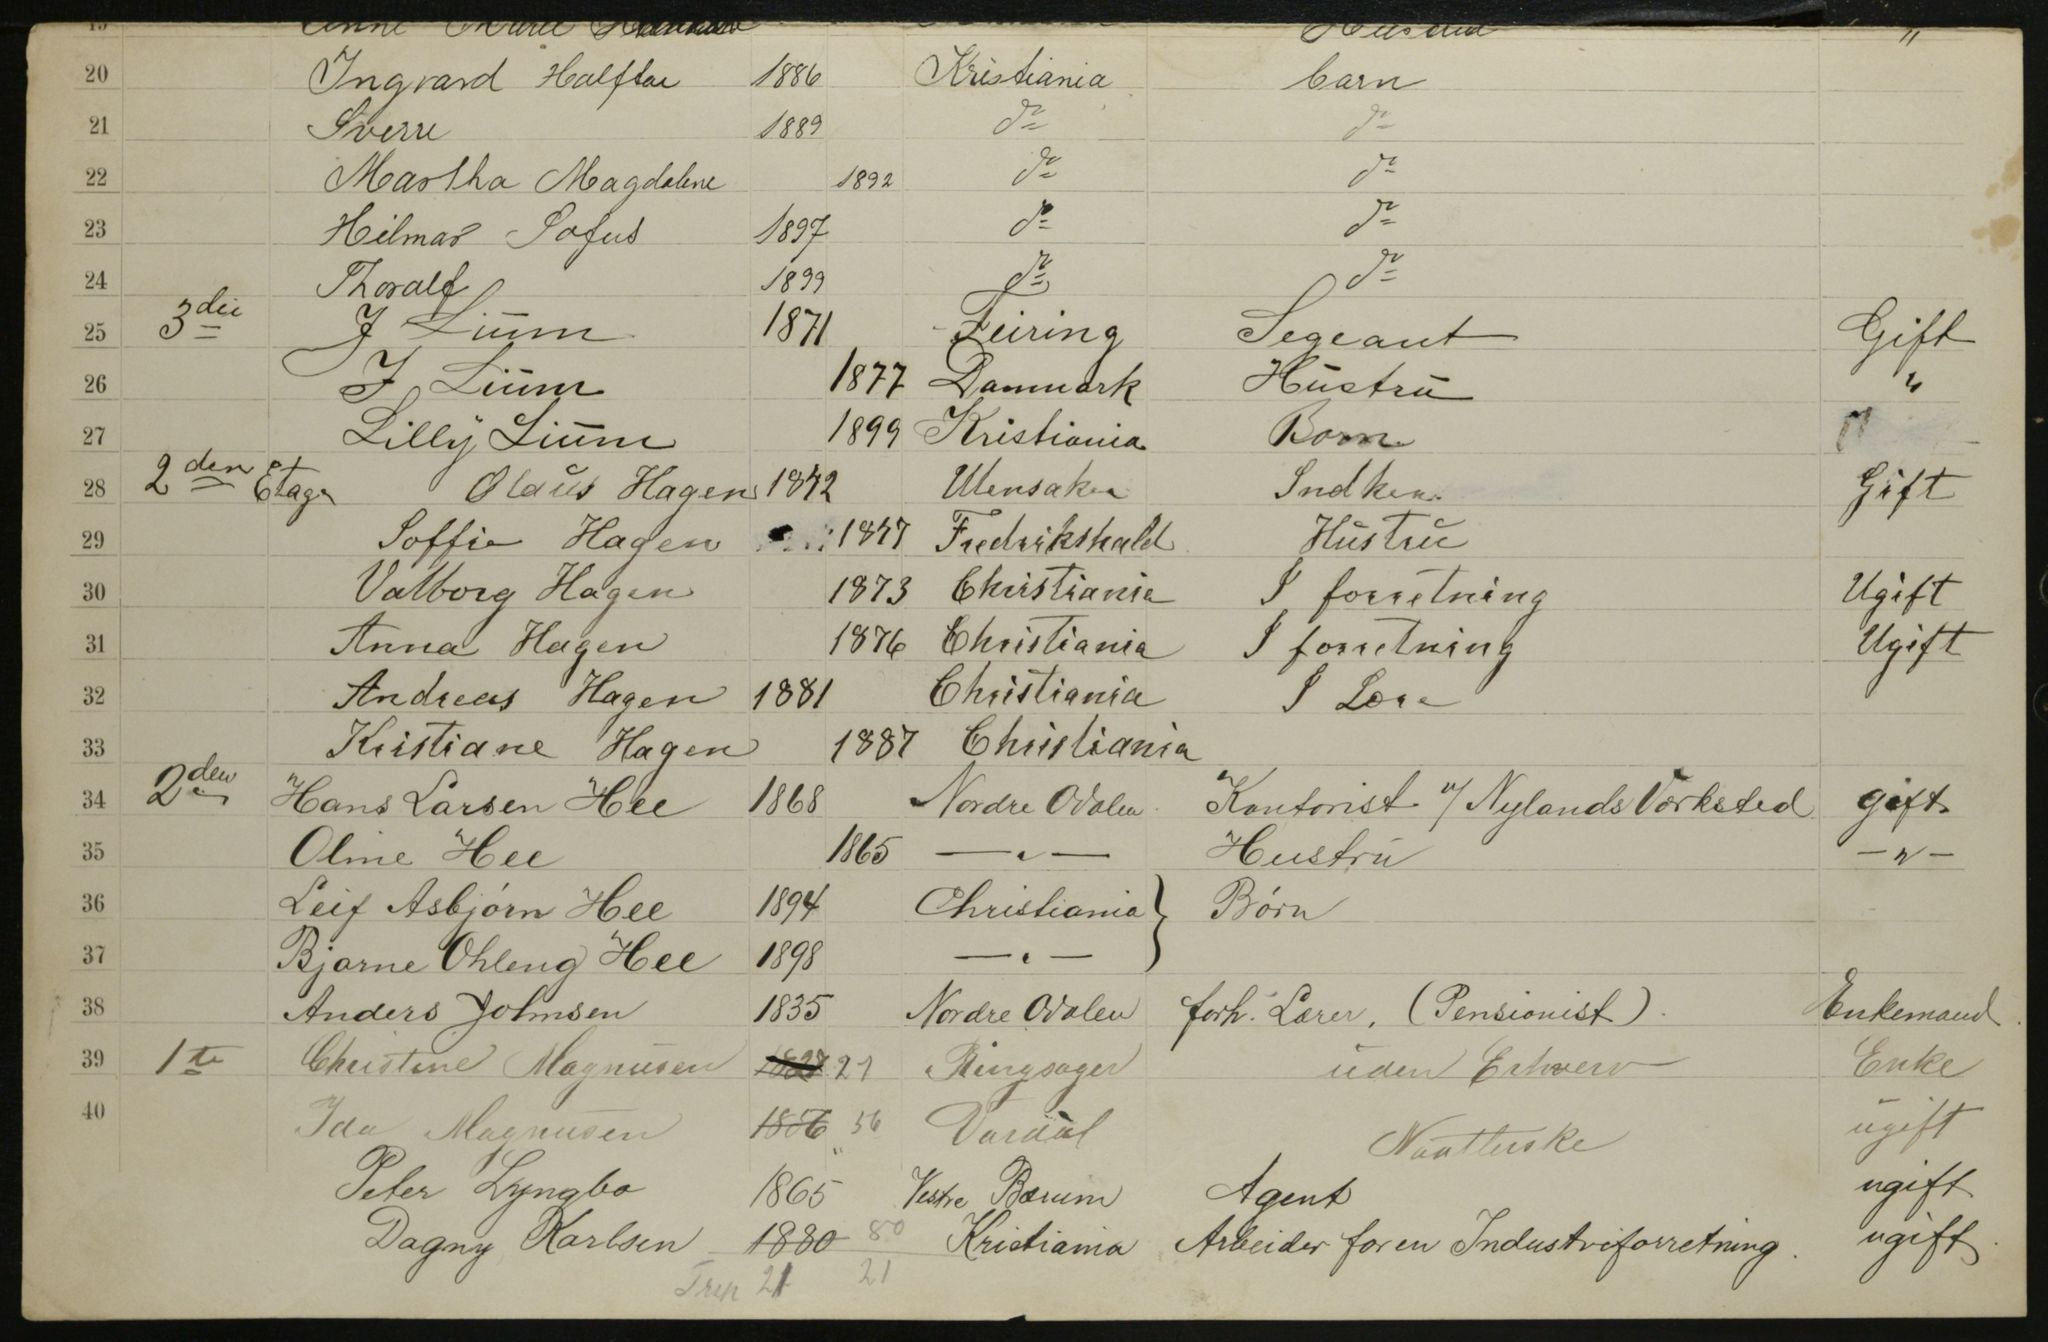 19 Anne Marie Hustru "
20 Ingvard Halftan 1886 Kristiania barn
21 Sverre 1889 do do
22 Martha Magdalene 1892 do do
23 Hilmar Sofus 1897 do do
24 Thoralf 1899 do do
25 3die J Lium 1871 Feiring Segeant Gift
26 J Lium 1877 Danmark Hustru "
27 Lilly Lium 1899 Kristiania Barn
28 2den Etage Olaus Hagen 1842 Ulensaker Indker. Gift
29 Soffie Hagen 1847 Fredrikshald Hustru
30 Valborg Hagen 1873 Christiania I forretning Ugift
31 Anna Hagen 1876 Christiania I forretning Ugift
32 Andreas Hagen 1881 Christiania I Lære
33 Kristiane Hagen 1887 Christiania
34 2den Hans Larsen Hee 1868 Nordre Odalen Kontorist v/ Nylands Værksted gift
35 Oline Hee 1865 — " — Hustru — " —
36 Leif Asbjørn Hee 1894 Christiania } Børn
37 Bjarne Ohleng Hee 1898 — " —
38 Anders Johnsen 1835 Nordre Odalen forh. Lærer, (Pensionist). Enkemand.
39 1te Christine Magnusen 1827 27 Ringsager uden Erhverv Enke
40 Ida Magnusen 1856 56 Vardal ugift
Peter Lyngbo 1865 Vestre Bærum Agent ugift
Dagny Karlsen 1880 80 Kristiania Arbeider for en Industriforretning. ugift.
21 21